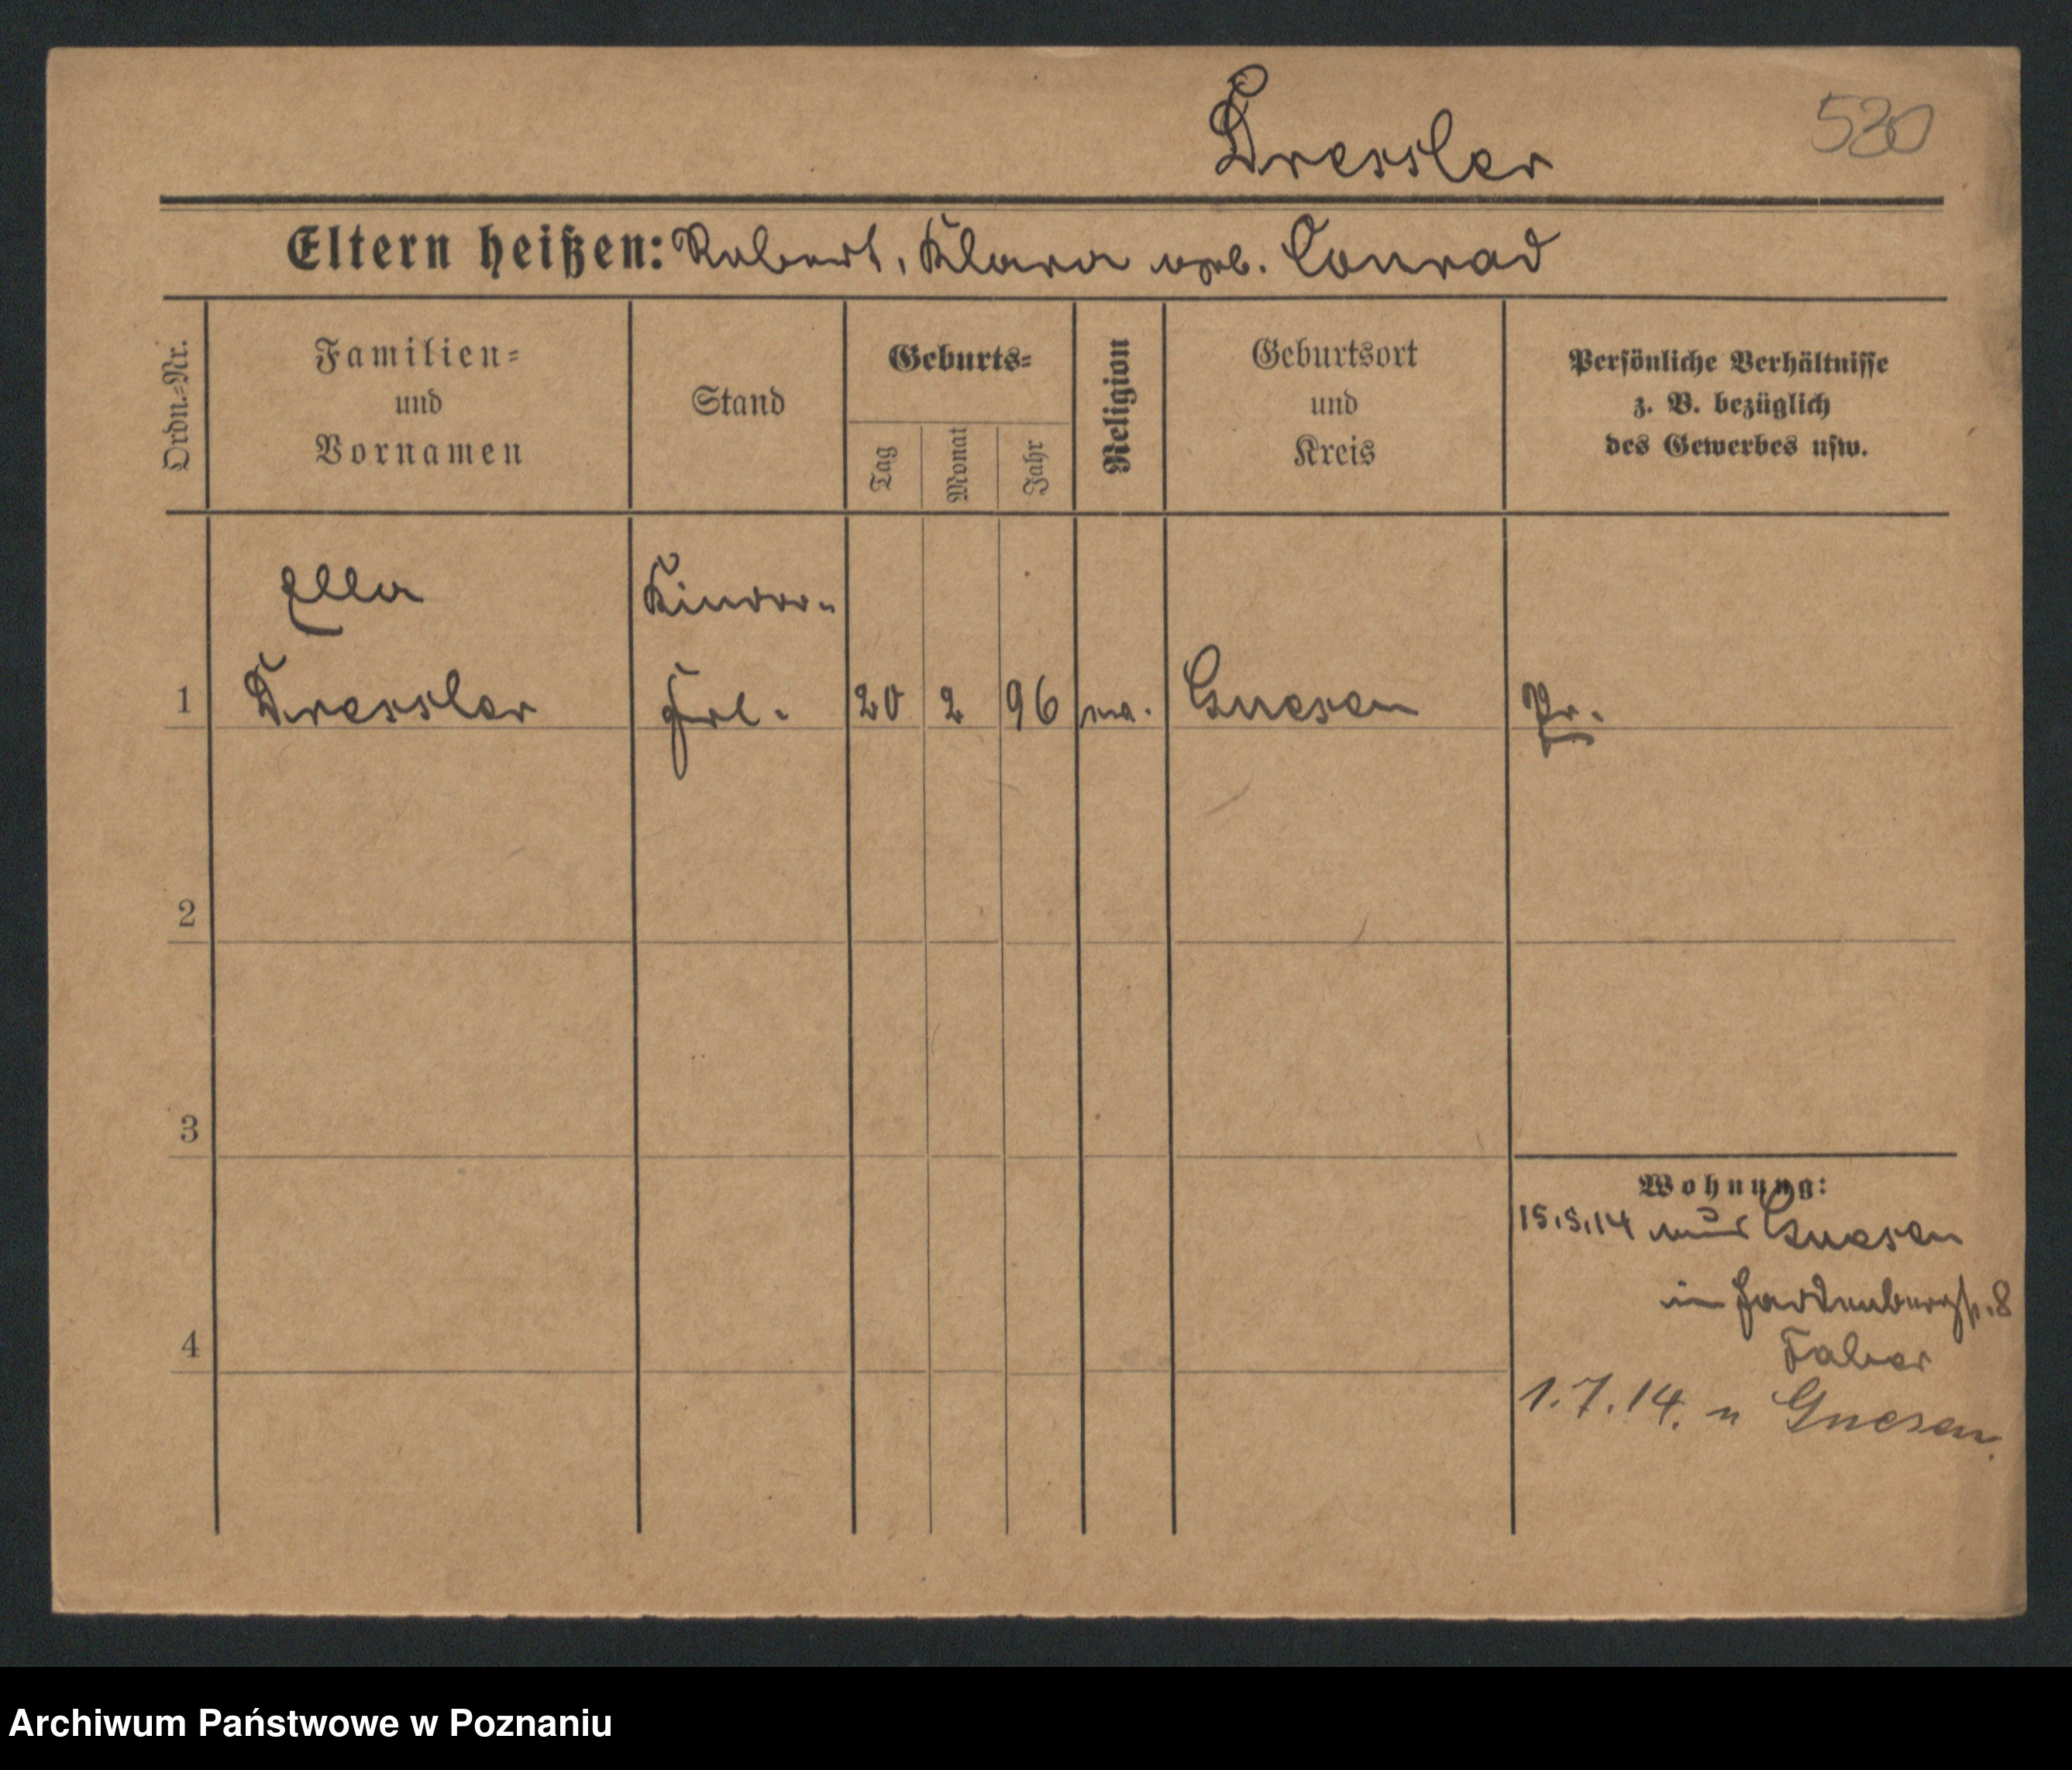 Dressler
520
Eltern heißen: Robert, Klara geb. Conrad
Ordn.-Nr.
Familien-
und
Vornamen
Stand
Geburts-
Tag
Monat
Jahr
Religion
Geburtsort
und
Kreis
Persönliche Verhältnisse
z. B. bezüglich
des Gewerbes usw.
Ella
Kinder-
1 Dressler Frl. 20 2 96 Gnesen Pr.
2
3
4
Wohnung:
15.5.14 aus Gnesen
in Hardenbergstr. 8
Faber
1.7.14. n Gnesen.
Archiwum Państwowe w Poznaniu